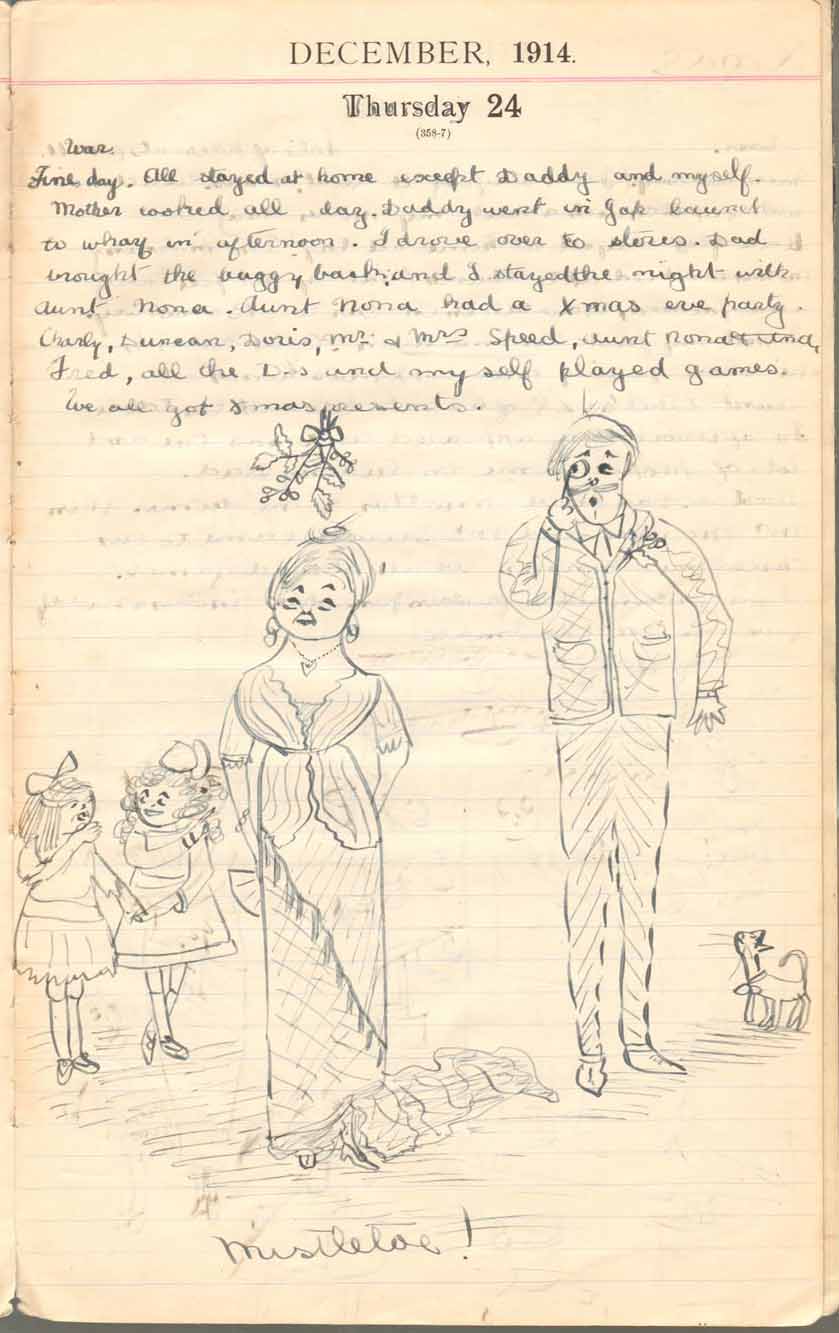 DECEMBER, 1914.
Thursday 24
(358-7)
War.
Fine day. All stayed at home except Daddy and myself.
Mother cooked all day. Daddy went in Gap launch
to wharf in afternoon. I drove over to stores. Dad
brought the buggy back and I stayed the night with
Aunt Nona. Aunt Nona had a Xmas eve party.
Charly, Duncan, Doris, Mr. & Mrs Speed, Aunt Nona &
Fred, all the D-s and my self played games.
We all got Xmas presents.
Mistletoe!